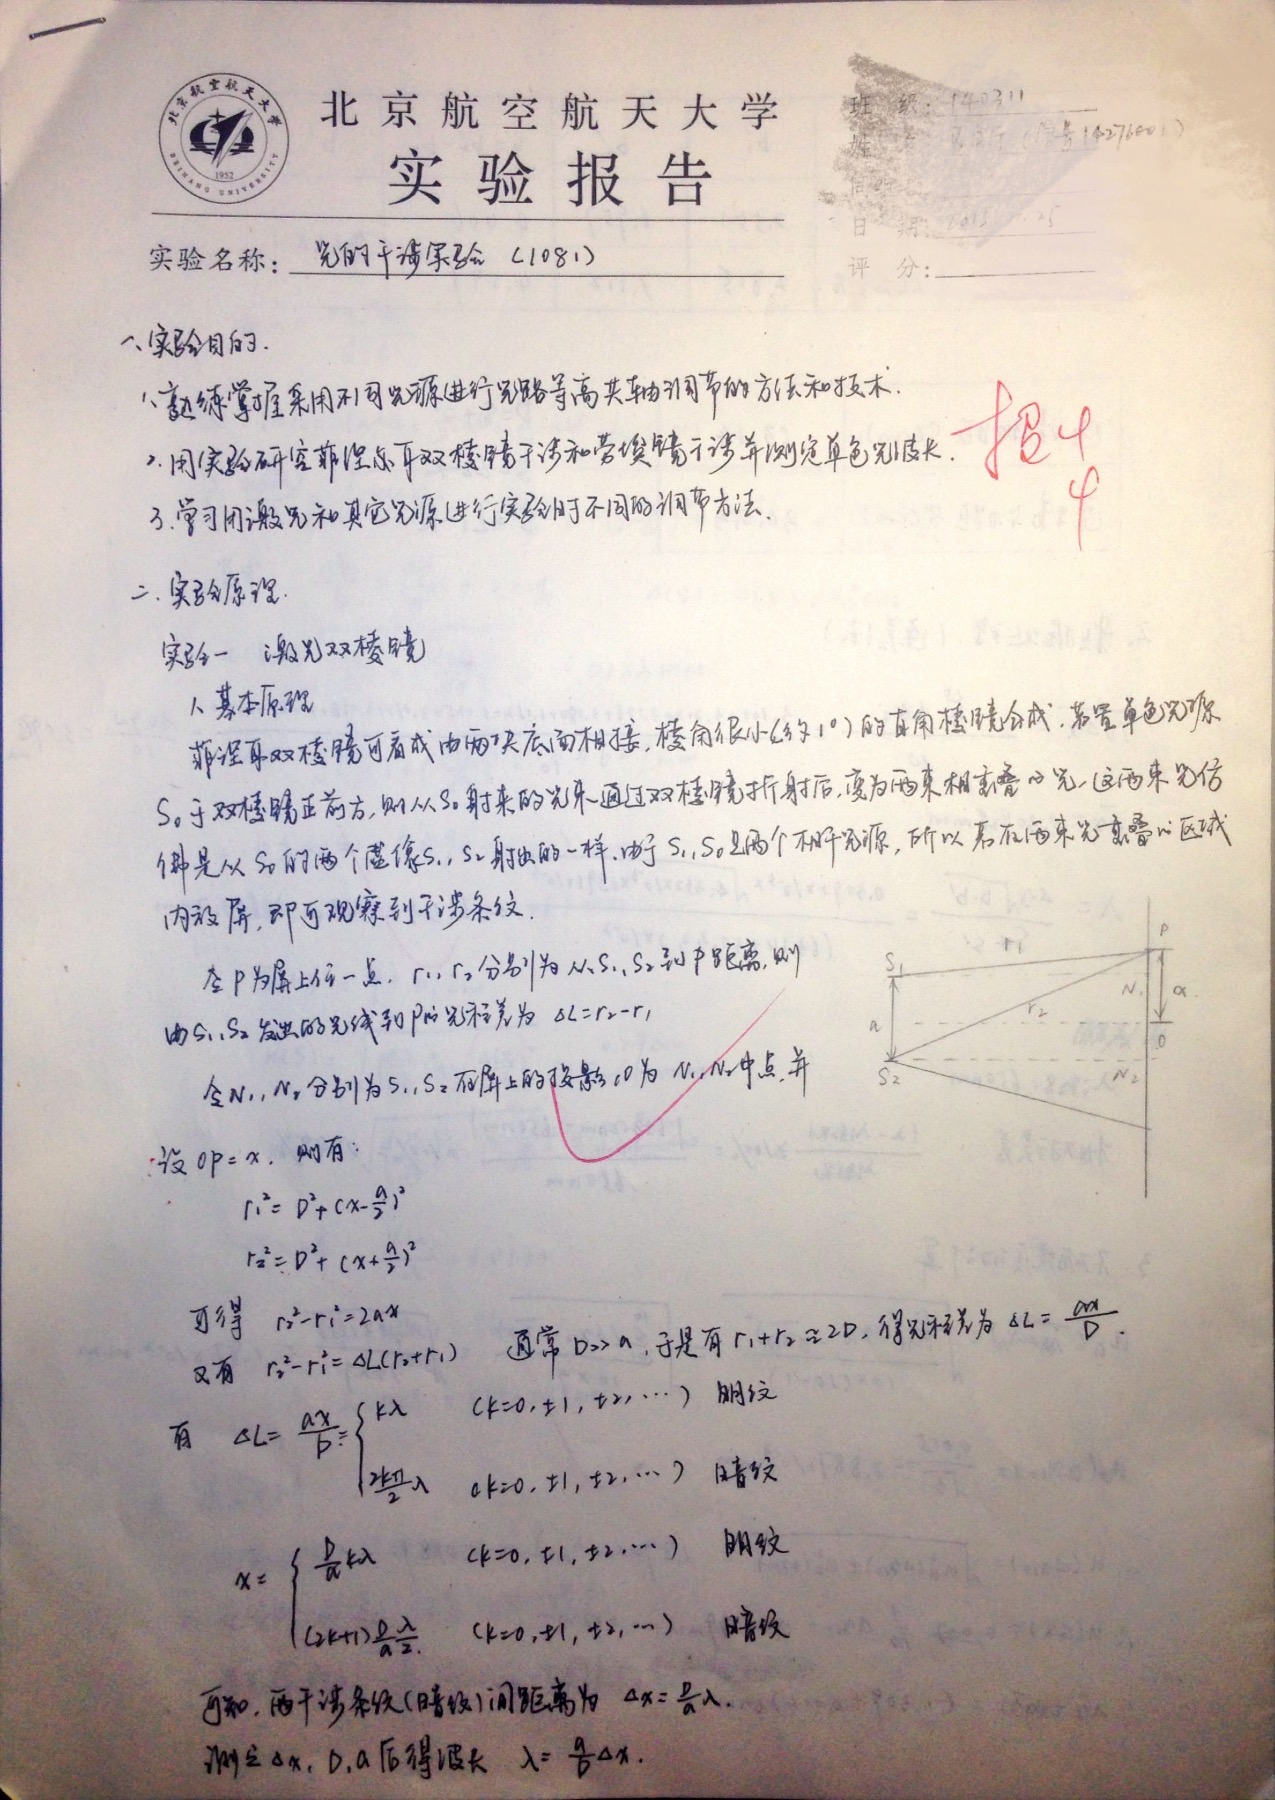 北京航空航天大学
BEIHANG UNIVERSITY
1952
北京航空航天大学
实验报告
班 级: 140311
日 期:
评 分:
实验名称: 光的干涉实验 (1081)
一、实验目的.
1、熟练掌握采用不同光源进行光路等高共轴调节的方法和技术.
2. 用实验研究菲涅尔耳双棱镜干涉和劳埃镜干涉并测定单色光波长.
3. 学习用激光和其它光源进行实验时不同的调节方法.
4
二. 实验原理.
实验一 激光双棱镜
1、基本原理
菲涅耳双棱镜可看成由两块底面相接,棱角很小(约1°)的直角棱镜合成. 若置单色光源
S₀于双棱镜正前方,则从S₀射来的光束通过双棱镜折射后,变为两束相重叠的光,这两束光仿
佛是从S₀的两个虚像S₁, S₂射出的一样.由于S₁,S₀是两个相干光源,所以若在两束光重叠的区域
内放屏,即可观察到干涉条纹.
令P为屏上任一点. r₁, r₂分别为从S₁,S₂到P距离,则
由S₁,S₂发出的光线到P的光程差为 ΔL=r₂-r₁
令N₁, N₂分别为S₁,S₂在屏上的投影,O为N₁,N₂中点,并
设OP=x. 则有:
S₁ S₂ a r₁ r₂ P N₁ x O N₂
r₁²= D²+(x-a/2)²
r₂²= D²+(x+a/2)²
可得 r₂²-r₁²=2ax
又有 r₂²-r₁²=ΔL(r₂+r₁) 通常D>>a,于是有r₁+r₂≈2D,得光程差为 ΔL=ax/D.
有 ΔL= ax/D = { kλ (k=0,±1,±2,…) 明纹
(2k+1)/2 λ (k=0,±1,±2,…) 暗纹
x= { D/a kλ (k=0,±1,±2,…) 明纹
(2k+1) D/a λ/2. (k=0,±1,±2,…) 暗纹
可知,两干涉条纹(暗纹)间距离为 Δx= D/a λ.
测定Δx, D, a后得波长 λ= a/D Δx.